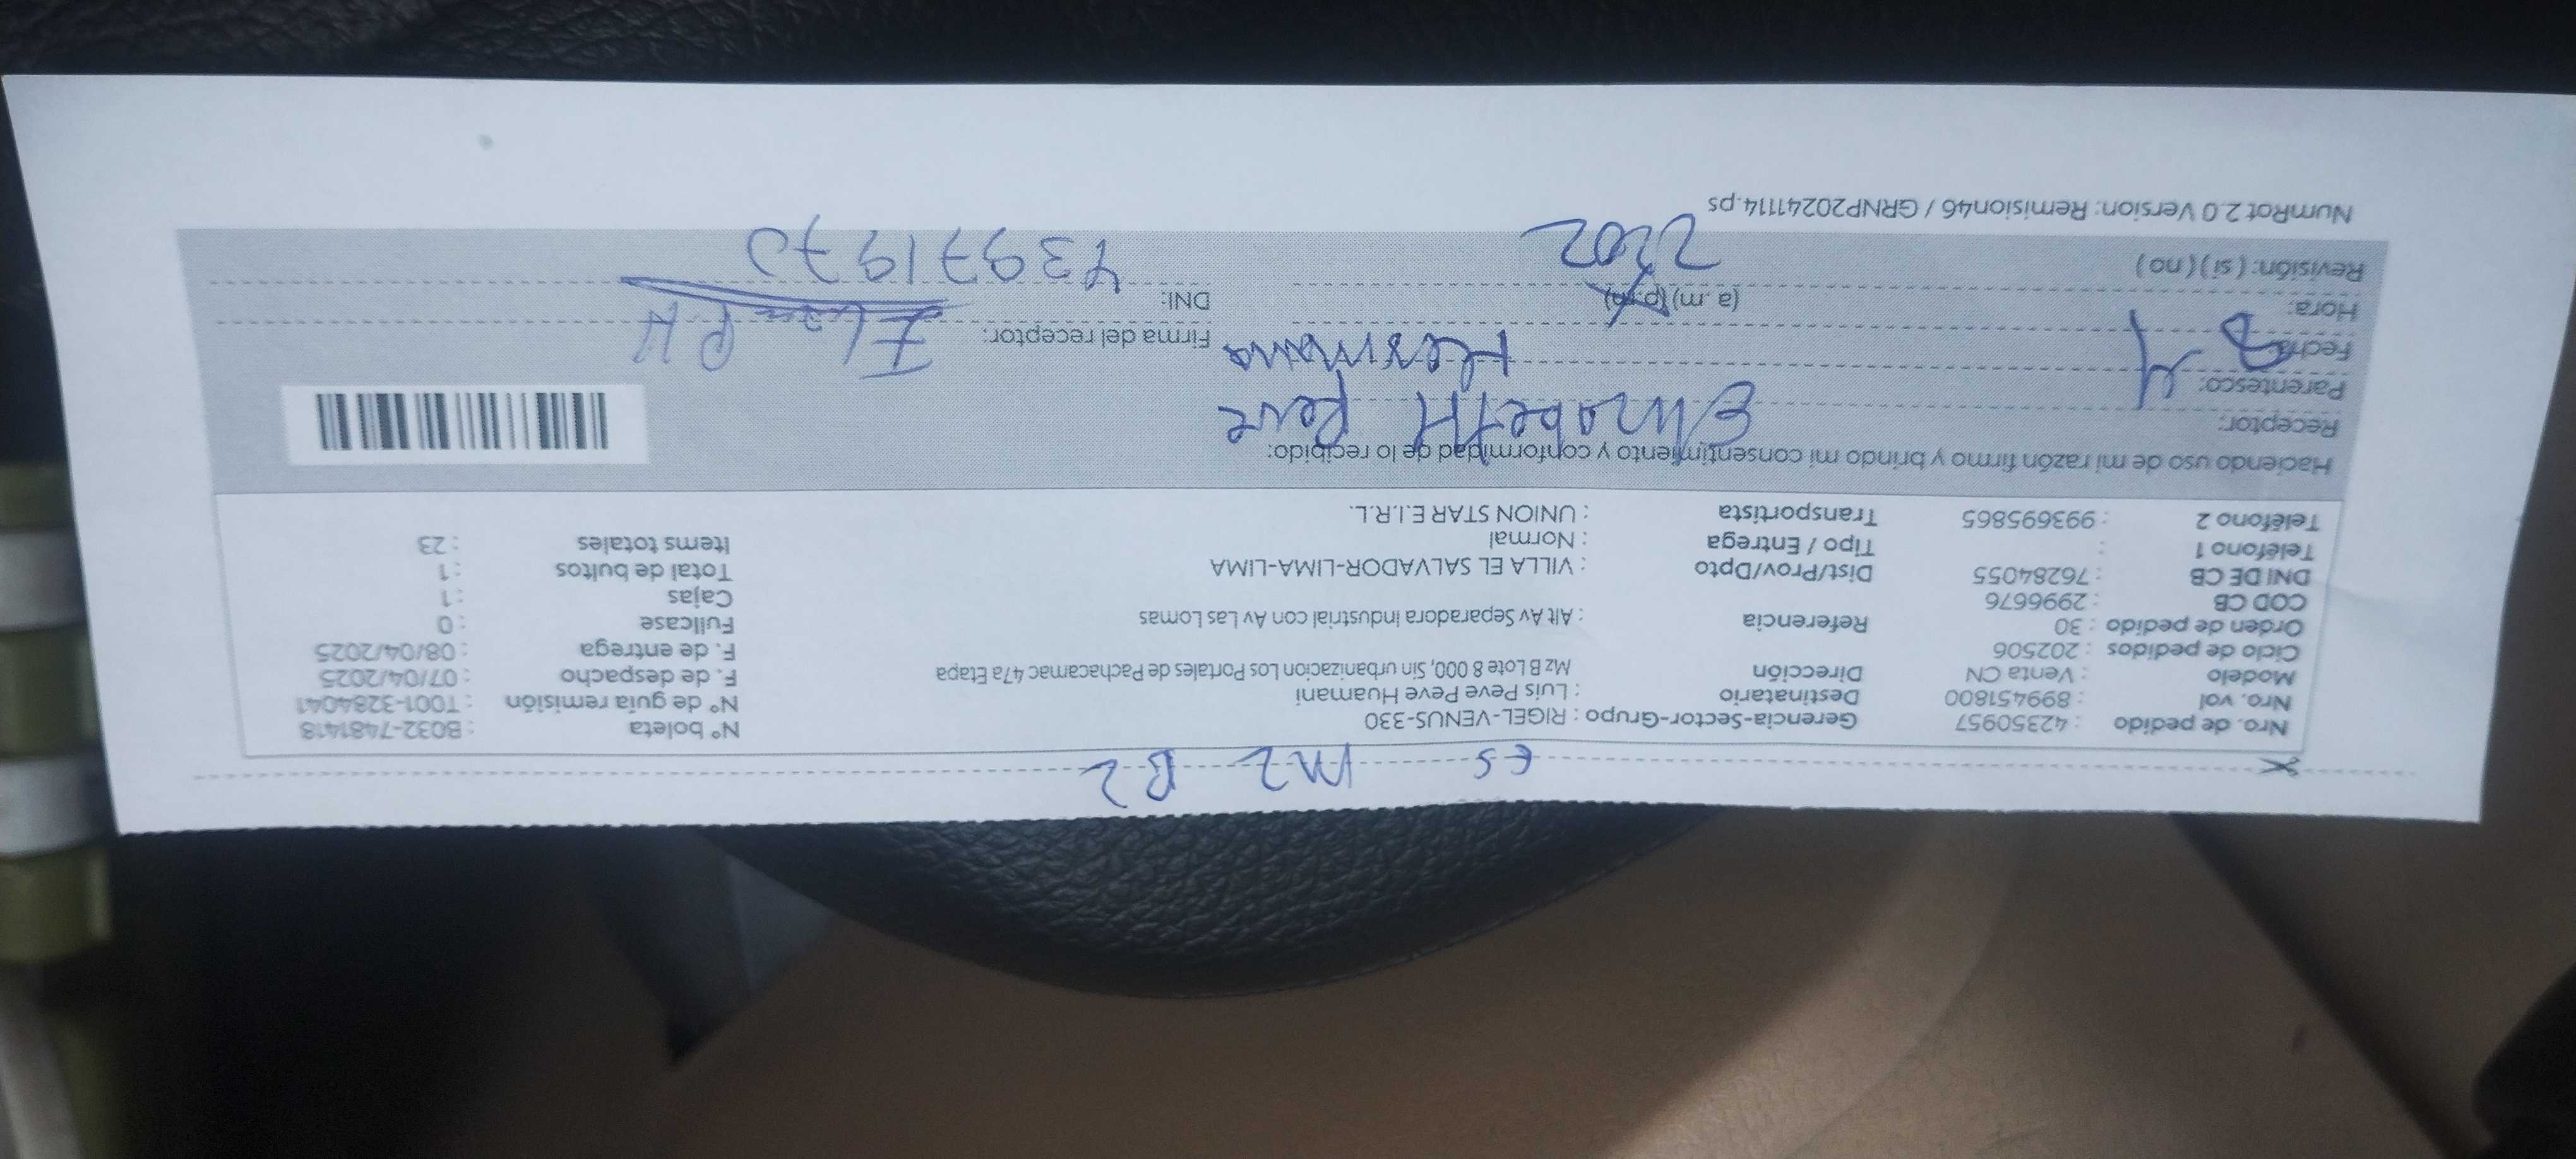 es Mz B2
Nro. de pedido : 42350957 Gerencia-Sector-Grupo : RIGEL-VENUS-330 N° boleta : B032-7481418
Nro. vol : 899451800 Destinatario : Luis Peve Peve Huamani N° de guía remisión : T001-3284041
Modelo : Venta CN Dirección Mz B Lote 8 000, Sin urbanizacion Los Portales de Pachacamac 47a Etapa F. de despacho : 07/04/2025
Ciclo de pedidos : 202506 F. de entrega : 08/04/2025
Orden de pedido : 30 Referencia : Alt Av Separadora Industrial con Av Las Lomas Fullcase : 0
COD CB : 2996676 Cajas : 1
DNI DE CB : 76284055 Dist/Prov/Dpto : VILLA EL SALVADOR-LIMA-LIMA Total de bultos : 1
Teléfono 1 : Tipo / Entrega : Normal Items totales : 23
Teléfono 2 : 993695865 Transportista : UNION STAR E.I.R.L.
Haciendo uso de mi razón firmo y brindo mi consentimiento y conformidad de lo recibido:
Receptor: Elizabeth Peve
Parentesco: Hermana
Fecha: 8 4 Firma del receptor: PH
Hora: (a. m) (p. m) DNI: 43971970
Revisión: (si) (no) 2202
NumRot 2.0 Version: Remision46 / GRNP20241114.ps